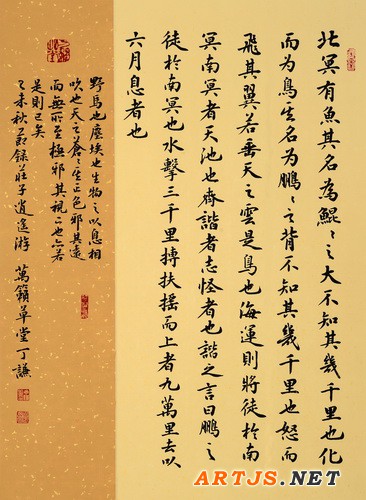 北冥有魚其名為鯤〻之大不知其幾千里也化
而為鳥其名為鵬〻之背不知其幾千里也怒而
飛其翼若垂天之雲是鳥也海運則將徙於南
冥南冥者天池也齊諧者志怪者也諧之言曰鵬之
徙於南冥也水擊三千里摶扶搖而上者九萬里去以
六月息者也
野馬也塵埃也生物之以息相
吹也天之蒼〻其正色邪其遠
而無所至極邪其視下也亦若
是則已矣
乙未秋節錄莊子逍遙游 萬籟草堂丁謙
ARTJS.NET